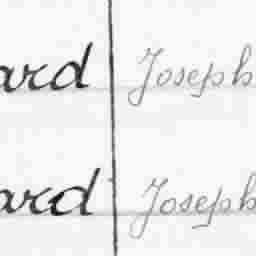 ard Joseph
ard Joseph